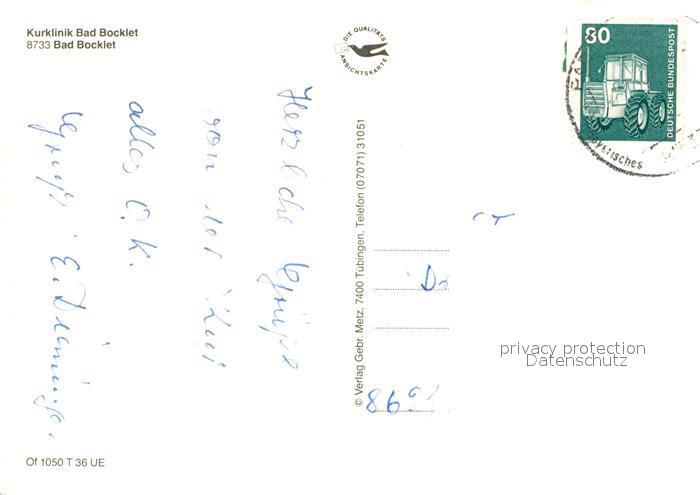 Kurklinik Bad Bocklet
8733 Bad Bocklet
DIE QUALITÄTS
ANSICHTSKARTE
80
DEUTSCHE BUNDESPOST
Bayerisches
Herzliche Grüße
von der Kur
alles O.K.
Gruß E.
© Verlag Gebr. Metz, 7400 Tübingen, Telefon (07071) 31051
privacy protection
Datenschutz
Of 1050 T 36 UE